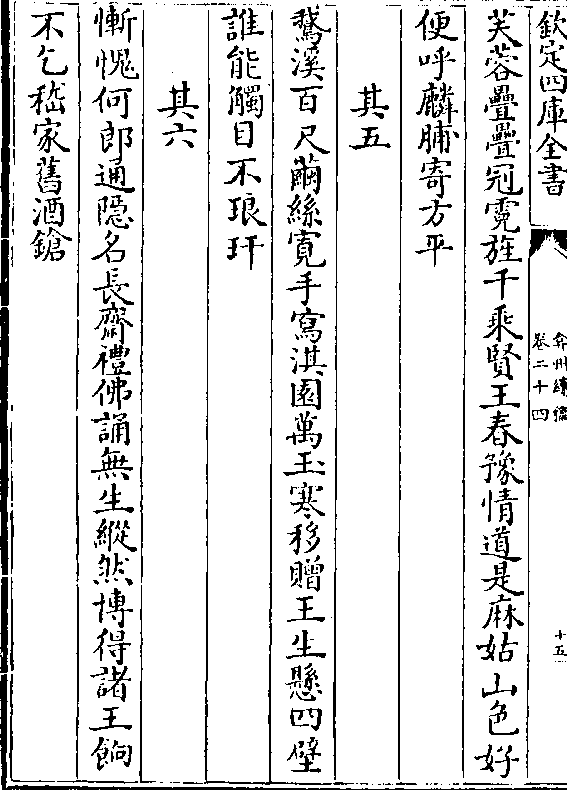 欽定四庫全書
弇州續稿
卷二十四
十五
芙蓉疊疊冠霓旌千乘賢王春豫情道是麻姑山色好
便呼麟脯寄方平
其五
鵞溪百尺繭絲寛手寫淇園萬玉寒移贈王生懸四壁
誰能觸目不琅玕
其六
慚愧何郎通隱名長齋禮佛誦無生縱然博得諸王餉
不乞嵇家舊酒鎗